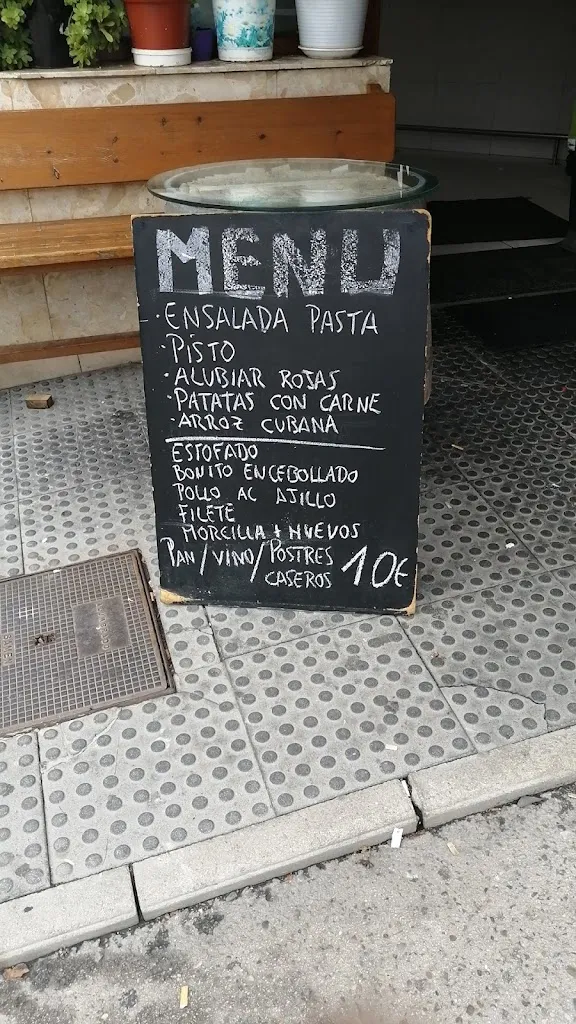 MENU
·ENSALADA PASTA
·PISTO
·ALUBIAR ROJAS
·PATATAS CON CARNE
·ARROZ CUBANA
ESTOFADO
BONITO ENCEBOLLADO
POLLO AC AJILLO
FILETE
MORCILLA + HUEVOS
PAN/VINO/POSTRES
CASEROS 10€